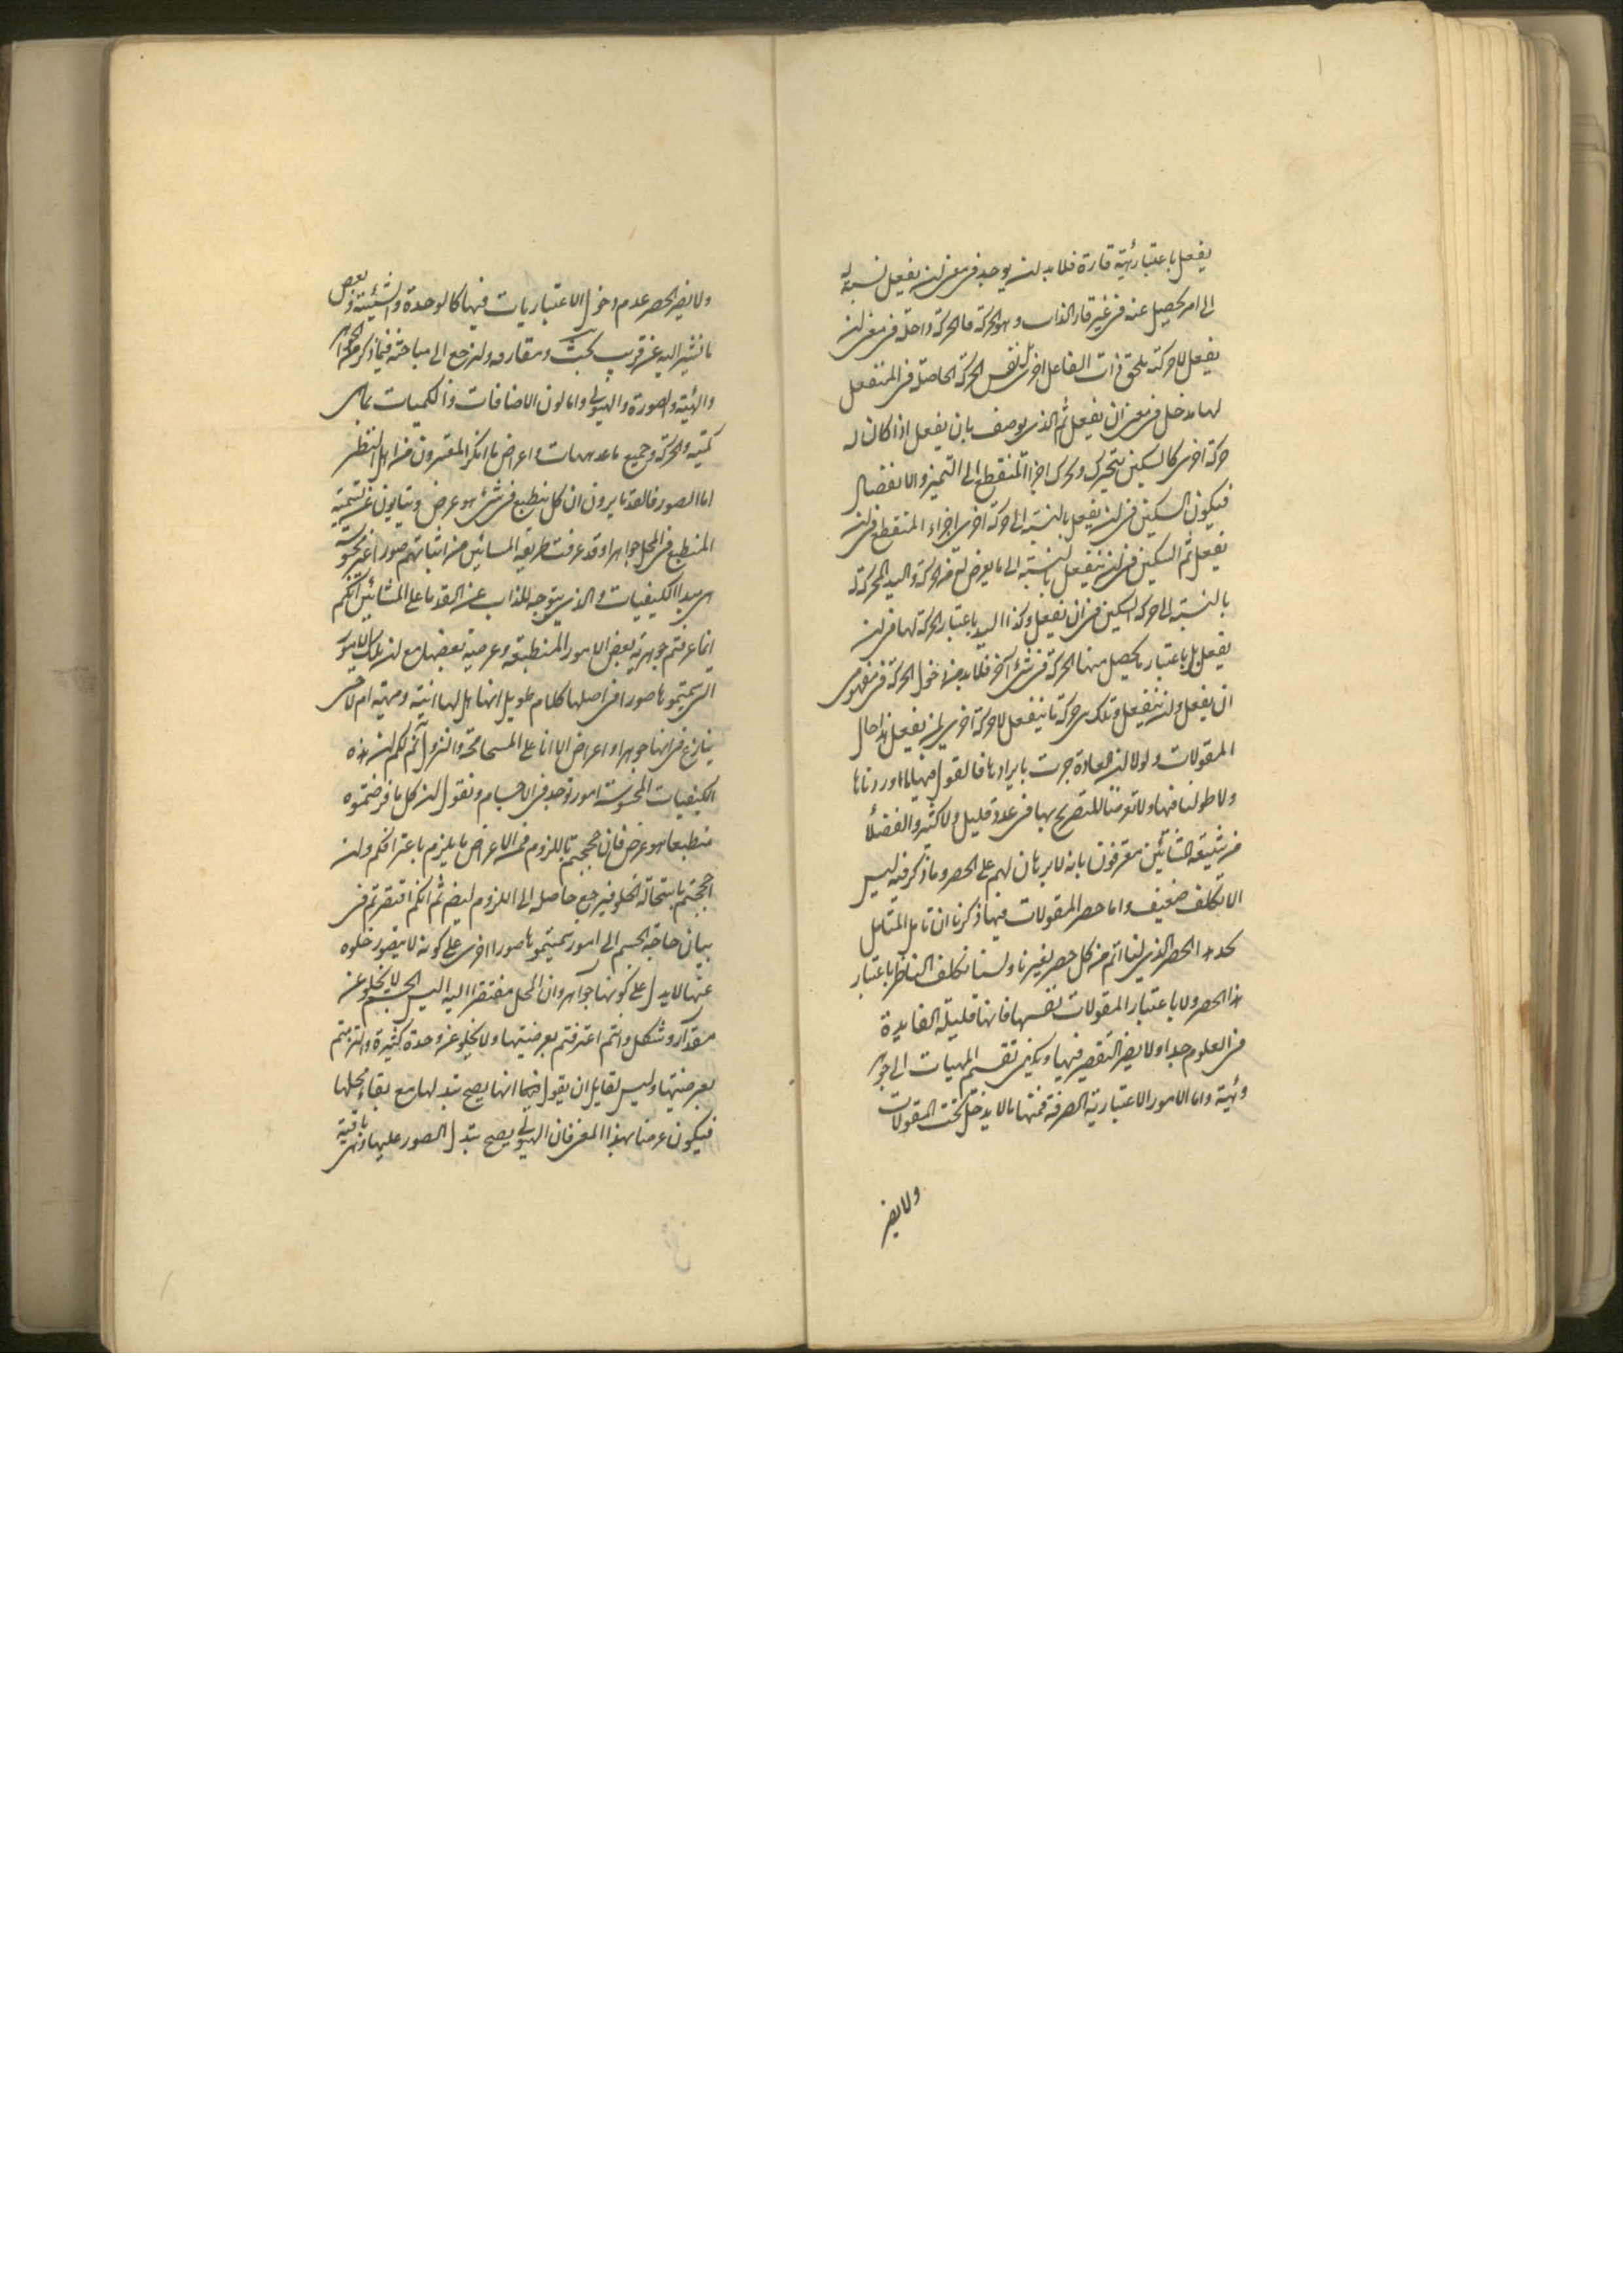 يفعل باعتبار هيئة قارة فلا بد ان يوجد في معنى ان يفعل نسبة له
الى امر يحصل عنه في غير قار الذات وهو الحركة فالحركة داخلة في معنى ان
يفعل لا حركة يلحق ذات الفاعل اخرى بل نفس الحركة الحاصلة في المنفعل
لها مدخل في معنى ان يفعل ثم الذي يوصف بان يفعل اذا كان له
حركة اخرى كالسكين يتحرك ويحرك اجزا المنقطع الى التميز والانفصال
فيكون السكين في ان يفعل بالنسبة الى حركة اخرى اجزاء المنقطع في ان
يفعل ثم السكين في ان ينفعل بالنسبة الى ما يعرض له من الحركة واليد المحركة له
بالنسبة الى حركة السكين في ان يفعل وكذا اليد باعتبار الحركة لها في ان
يفعل بل باعتبار ما يحصل منها الحركة في شئ آخر فلا بد من دخول الحركة في مفهومى
ان يفعل وان ينفعل وتلك هي حركة ما ينفعل لا حركة اخرى لمن يفعل هذا حال
المقولات ولولا ان العادة جرت بايرادها فالقول فيها لما اوردناها
ولا طولنا فيها ولا تعرضنا للتصريح بها في عدد قليل ولا كثير والفضلأ
من شيعة المشائين معترفون بانه لا برهان لهم على الحصر وما ذكر فيه ليس
الا تكلف ضعيف واما حصر المقولات فيما ذكرنا ان تامل المتامل
يجد هذا الحصر الذي لنا اتم من كل حصر لغيرنا ولسنا نكلف الناظر باعتبار
هذا الحصر ولا باعتبار المقولات نفسها فانها قليلة الفايدة
في العلوم جدا ولا يضر التقصير فيها ويكفي تقسيم المهيات الى جوهر
وهيئة واما الامور الاعتبارية الصرفة فمنها ما لا يدخل تحت المقولات
ولا يضر
ولا يضر الحصر عدم دخول الاعتباريات فيها كالوحدة والشيئية وبعض
ما نشير اليه عن قريب بحث ومقاومة ولنرجع الى مباحثة فيما ذكر من الجواهر
والهيئة والصورة والهيولى واما لون الاضافات والكميات بما هي
كمية والحركة وجميع ما عددت واعراض ما انكر المعتبرون من اهل النظر
اما الصور فالقدما يرون ان كل منطبع في شئ هو عرض ويتابون عن تسمية
المنطبع في المحل جواهرا وقد عرفت طريقة المشائين من اثباتهم صورا غير محسوسة
هي مبدا الكيفيات والذي يتوجه للذاب عن القدما على المشائين انكم
انما عرفتم جوهرية بعض الامور المنطبعة وعرضية بعضها مع ان تلك الامور
التي سميتموها صورا في اصلها كلام طويل انها هل لها انية ومهية ام لا حتى
ينازع في انها جواهر او اعراض الا انا على المسامحة والنزول نحكم لكم ان هذه
الكيفيات المحسوسة امور توجد في الاجسام ونقول ان كل ما فرضتموه
منطبعا هو عرض فان حججتم باللزوم فمن الاعراض ما يلزم باعترافكم وان
احججتم باستحالة الخلو فيرجع حاصله الى اللزوم ايضا ثم انكم اقتصرتم في
بيان حاجة الجسم الى امور سميتموها صورا اخرى على كونه لا يتصور خلوه
عنها لا يدل على كونها جواهر وان المحل مفتقرا اليه اليس الجسم لا يخلو عن
مقدار وشكل وانتم اعترفتم بعرضيتها ولا يخلو عن وحدة كثيرة والتزمتم
بعرضيتها وليس لقايل ان يقول فيها انها يصح تبدلها مع بقاء محلها
فيكون عرضا بهذا المعنى فان الهيولى يصح تبدل الصور عليها وهي باقية